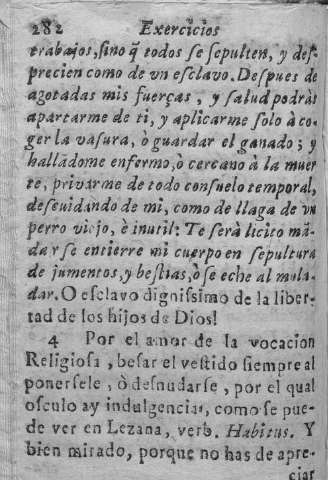 282 Exercicios
trabajos, sino q̃ todos se sepulten, y des-
precien como de vn esclavo. Despues de
agotadas mis fuerças, y salud podràs
apartarme de ti, y aplicarme solo à co-
ger la vasura, ò guardar el ganado; y
hallãdome enfermo, ò cercano à la muer
te, privarme de todo consuelo temporal,
descuidando de mi, como de llaga de vn
perro viejo, è inutil: Te serà licito mã-
dar se entierre mi cuerpo en sepultura
de jumentos, y bestias, ò se eche al mula-
dar. O esclavo dignissimo de la liber-
tad de los hijos de Dios!
4 Por el amor de la vocacion
Religiosa, besar el vestido siempre al
ponersele, ò desnudarse, por el qual
osculo ay indulgencias, como se pue-
de ver en Lezana, verb. Habitus. Y
bien mirado, porque no has de apre-
ciar